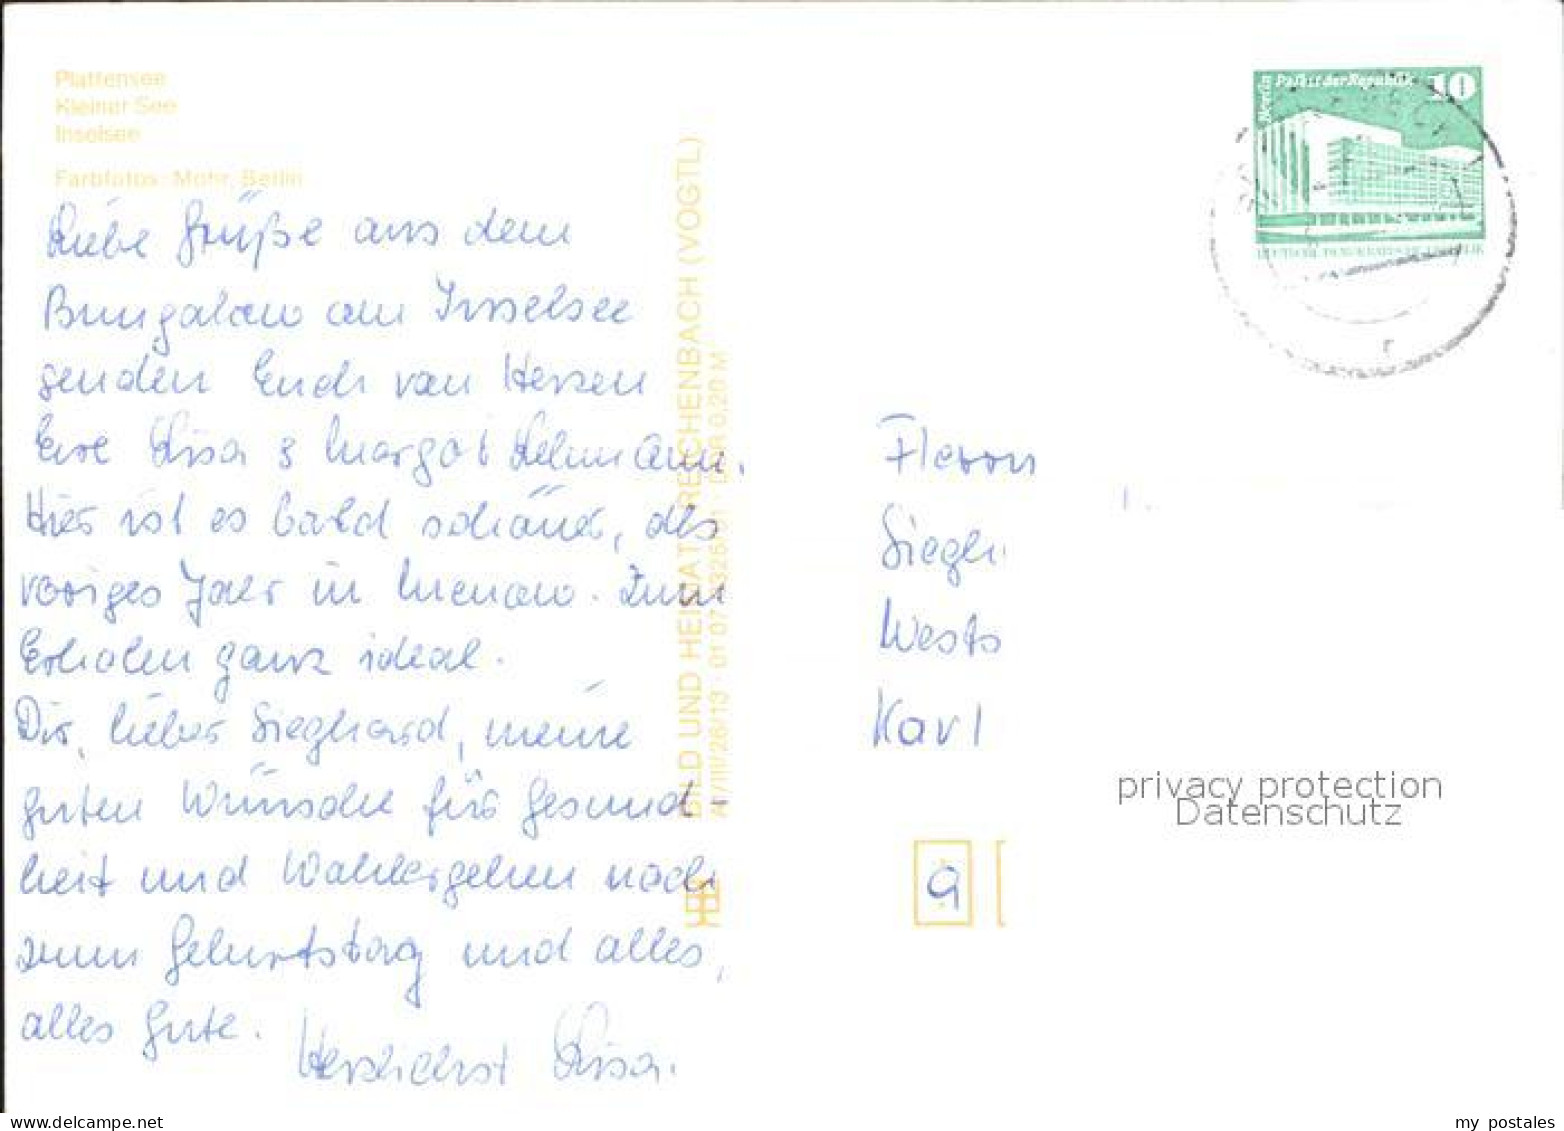 Plattensee
Kleiner See
Inselsee
Farbfotos: Mohr, Berlin
Liebe Grüße aus dem
Bungalow am Inselsee
senden Euch von Herzen
Eure Lisa & Margot Lehmann.
Hier ist es bald schöner, als
voriges Jahr in
Zum
Erholen ganz ideal.
Dir, lieber Sieghard, meine
guten Wünsche für Gesund
heit und Wohlergehen noch
zum Geburtstag und alles,
alles Gute.
Herzlichst Lisa.
BILD UND HEIMAT REICHENBACH (VOGTL)
DDR 0,20 M
Berlin Palast der Republik 10
DEUTSCHE DEMOKRATISCHE REPUBLIK
Herrn
Siegh
Karl
privacy protection
Datenschutz
9
delcampe.net
my postales